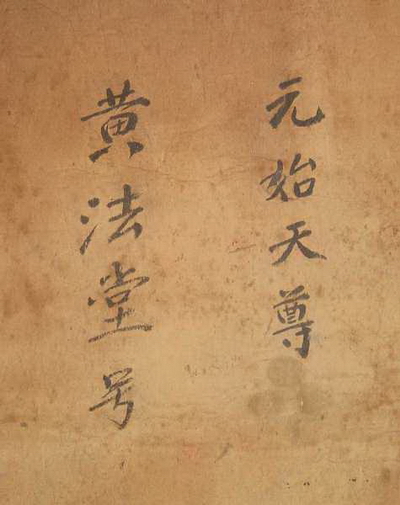 元始天尊
黄法堂号